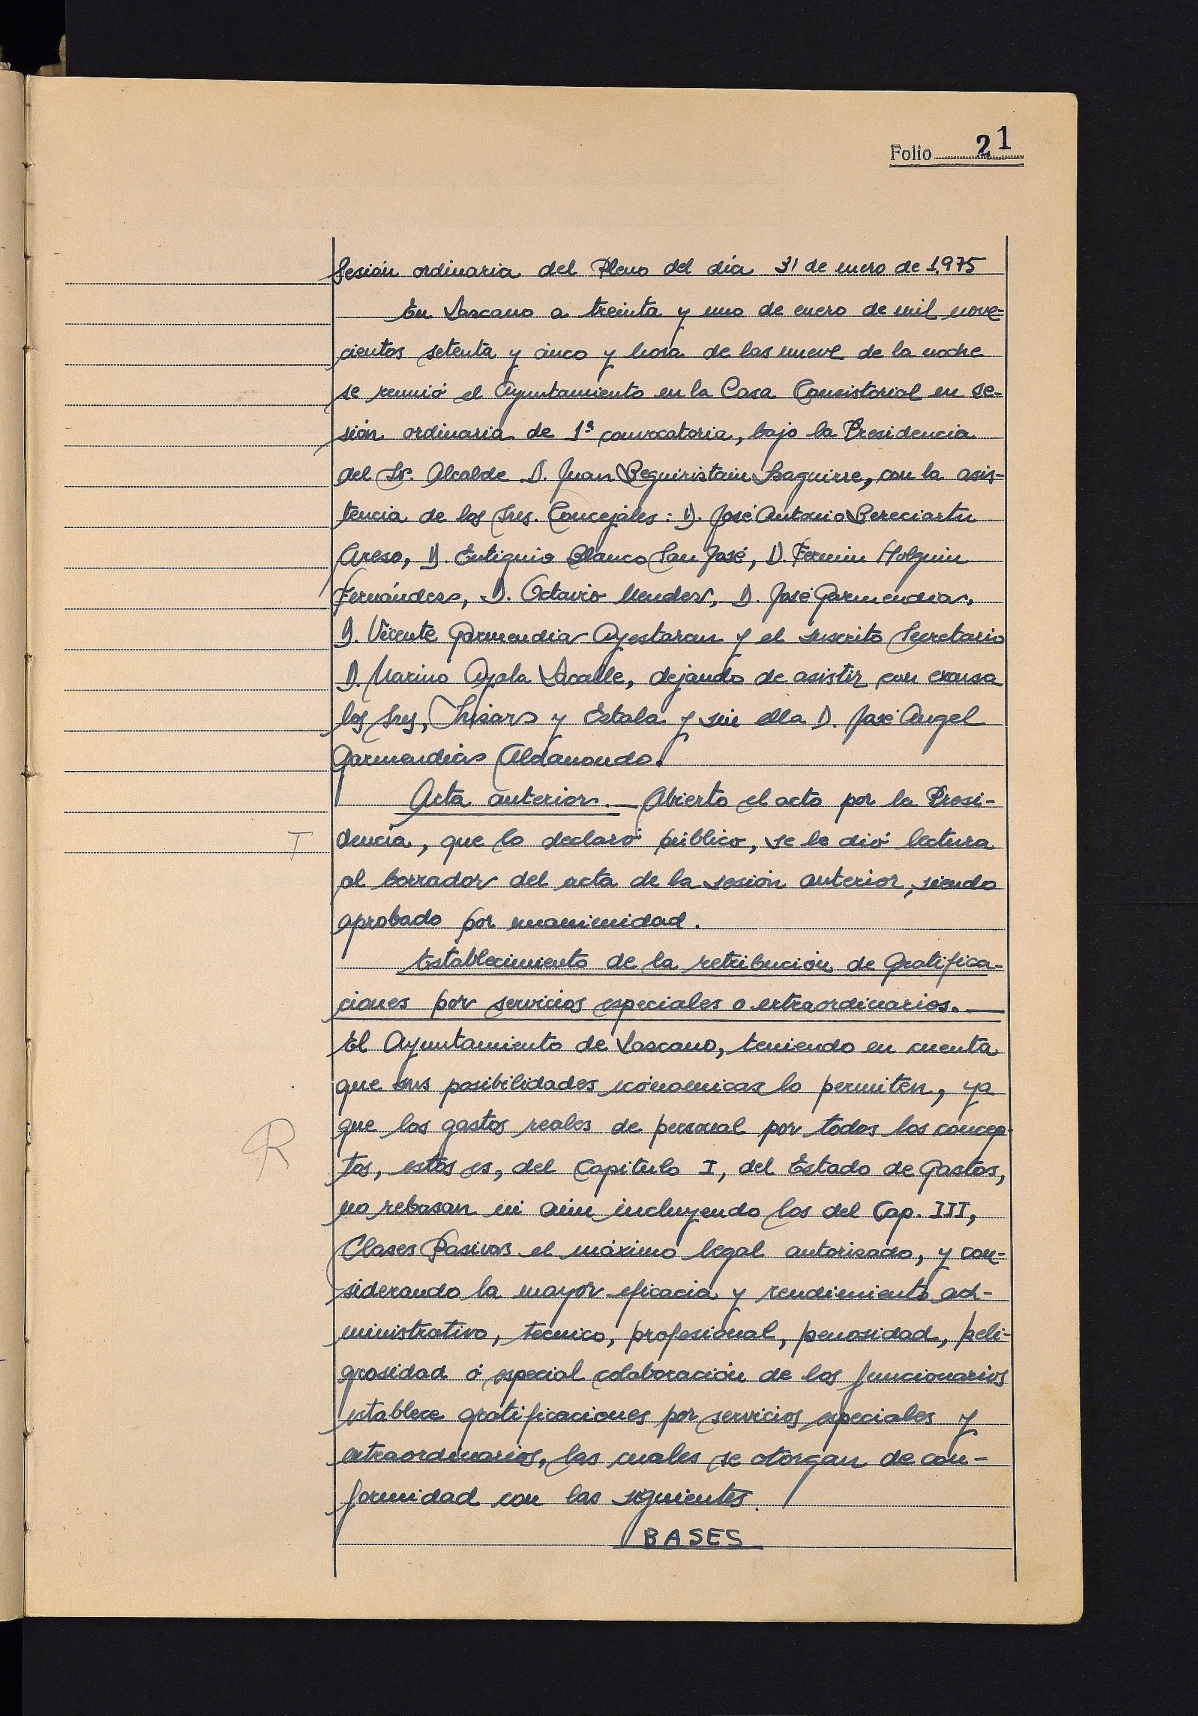 Folio 21
Sesión ordinaria del Pleno del día 31 de enero de 1975
En Lazcano a treinta y uno de enero de mil nove-
cientos setenta y cinco y hora de las nueve de la noche
se reunió el Ayuntamiento en la Casa Consistorial en se-
sión ordinaria de 1ª convocatoria, bajo la Presidencia
del Sr. Alcalde D. Juan Beguiristain Izaguirre, con la asis-
tencia de los Sres. Concejales: D. José Antonio Bereciartu
Areso, D. Eutiquio Blanco San José, D. Fermin Holguin
Fernández, D. Octavio Mendez, D. José Garmendia,
D. Vicente Garmendia Ayestaran y el suscrito Secretario
D. Marino Ayala Lacalle, dejando de asistir con excusa
los Sres, y Estala y sin ella D. José Angel
Garmendia Aldanondo.
Acta anterior.— Abierto el acto por la Presi-
T dencia, que lo declaró público, se le dió lectura
al borrador del acta de la sesión anterior, siendo
aprobado por unanimidad.
Establecimiento de la retribución de Gratifica-
ciones por servicios especiales o extraordinarios.—
El Ayuntamiento de Lazcano, teniendo en cuenta
que sus posibilidades económicas lo permiten, ya
R que los gastos reales de personal por todos los concep-
tos, estos es, del Capitulo I, del Estado de Gastos,
no rebasan ni aún incluyendo los del Cap. III,
Clases Pasivas el máximo legal autorizado, y con-
siderando la mayor eficacia y rendimiento ad-
ministrativo, tecnico, profesional, penosidad, peli-
grosidad ó especial colaboración de los funcionarios
establece gratificaciones por servicios especiales y
extraordinarios, las cuales se otorgan de con-
formidad con las siguientes.
BASES